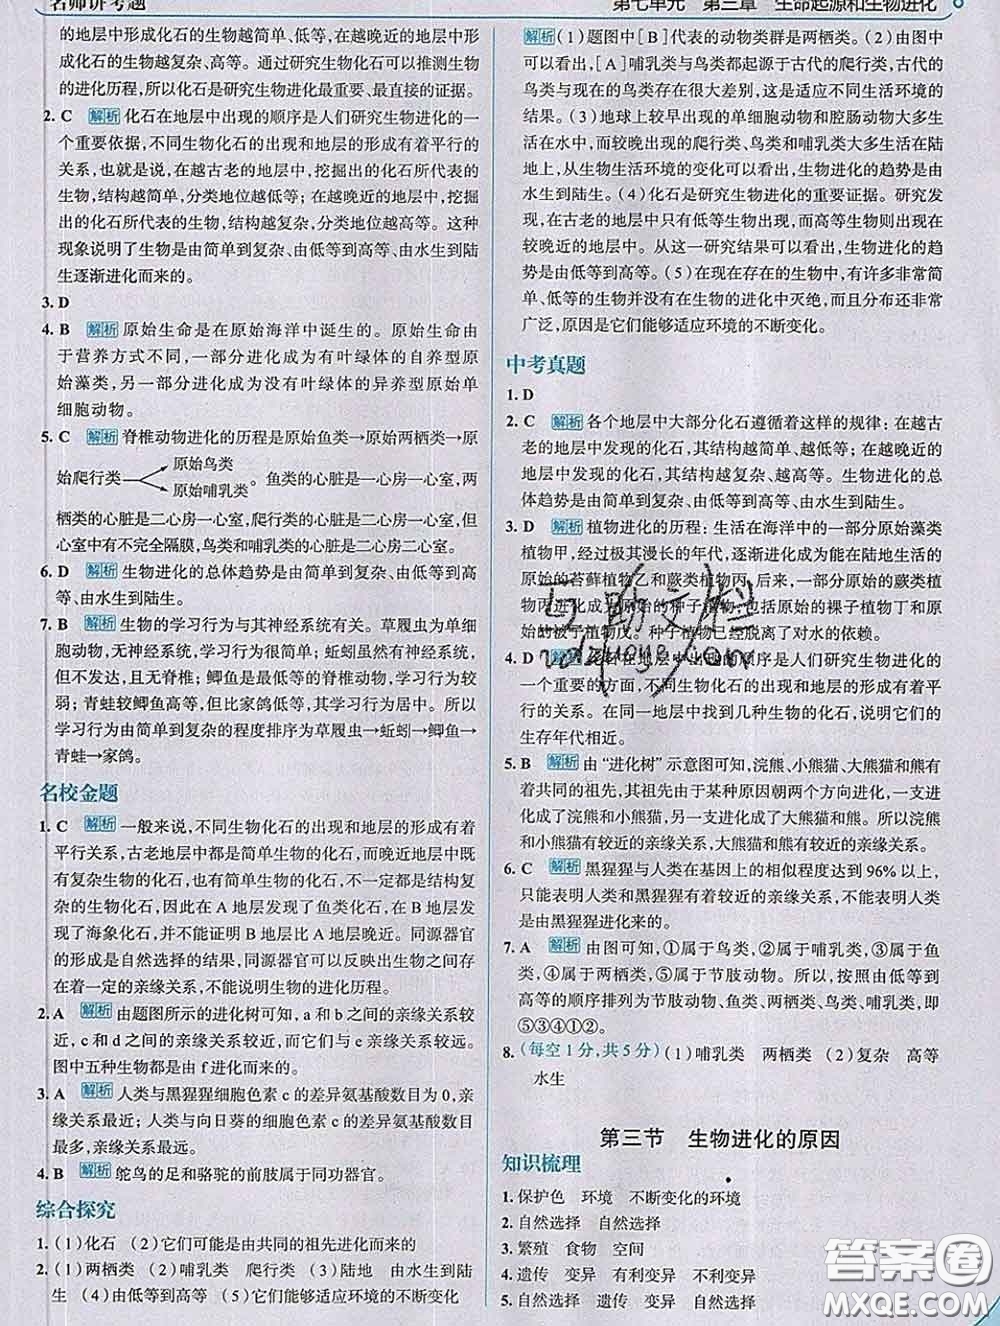 名师讲考题
第七单元　第三章　生命起源和生物进化
的地层中形成化石的生物越简单、低等,在越晚近的地层中形
成化石的生物越复杂、高等。通过研究生物化石可以推测生物
的进化历程,所以化石是研究生物进化最重要、最直接的证据。
2. C　解析 化石在地层中出现的顺序是人们研究生物进化的一
个重要依据,不同生物化石的出现和地层的形成有着平行的
关系,也就是说,在越古老的地层中,挖掘出的化石所代表的
生物,结构越简单,分类地位越低等;在越晚近的地层中,挖掘
出的化石所代表的生物,结构越复杂,分类地位越高等。这种
现象说明了生物是由简单到复杂、由低等到高等、由水生到陆
生逐渐进化而来的。
3. D
4. B　解析 原始生命是在原始海洋中诞生的。原始生命由
于营养方式不同,一部分进化成为有叶绿体的自养型原
始藻类,另一部分进化成为没有叶绿体的异养型原始单
细胞动物。
5. C　解析 脊椎动物进化的历程是原始鱼类→原始两栖类→原
始爬行类 原始鸟类 原始哺乳类 。鱼类的心脏是一心房一心室,两
栖类的心脏是二心房一心室,爬行类的心脏是二心房一心室,但
心室中有不完全隔膜,鸟类和哺乳类的心脏是二心房二心室。
6. D　解析 生物进化的总体趋势是由简单到复杂、由低等
到高等、由水生到陆生。
7. B　解析 生物的学习行为与其神经系统有关。草履虫为单细
胞动物,无神经系统,学习行为很简单;蚯蚓虽然有神经系统,
但不发达,且无脊椎;鲫鱼是最低等的脊椎动物,学习行为较
弱;青蛙较鲫鱼高等,但比家鸽低等,其学习行为居中。所以
学习行为由简单到复杂的程度排序为草履虫→蚯蚓→鲫鱼→
青蛙→家鸽。
名校金题
1. C　解析 一般来说,不同生物化石的出现和地层的形成有着
平行关系,古老地层中都是简单生物的化石,而晚近地层中既
有复杂生物的化石,也有简单生物的化石,不一定都是结构复
杂的生物化石,因此在A地层发现了鱼类化石,在B地层发现
了海象化石,并不能证明B地层比A地层晚近。同源器官
的形成是自然选择的结果,同源器官可以反映出生物之间存
在着一定的亲缘关系,不能说明生物的进化历程。
2. A　解析 由题图所示的进化树可知,a和b之间的亲缘关系较
近,c和d之间的亲缘关系较近,而它们与e亲缘关系较远。
图中五种生物都是由f进化而来的。
3. A　解析 人类与黑猩猩细胞色素c的差异氨基酸数目为0,亲
缘关系最近;人类与向日葵的细胞色素c的差异氨基酸数目
最多,亲缘关系最远。
4. B　解析 鸵鸟的足和骆驼的前肢属于同功器官。
综合探究
1. (1)化石　(2)它们可能是由共同的祖先进化而来的
2. (1)两栖类　(2)哺乳类　爬行类　(3)陆地　由水生到陆
生　(4)由低等到高等　(5)它们能够适应环境的不断变化
解析 (1)题图中[B]代表的动物类群是两栖类。(2)由图中
可以看出,[A]哺乳类与鸟类都起源于古代的爬行类,古代的
鸟类与现在的鸟类存在很大差别,这是适应不同生活环境的
结果。(3)地球上较早出现的单细胞动物和腔肠动物大多生
活在水中,而较晚出现的爬行类、鸟类和哺乳类大多生活在陆
地上,从生物生活环境的变化可以看出,生物进化的趋势是由
水生到陆生。(4)化石是研究生物进化的重要证据。研究发
现,在古老的地层中只有低等生物出现,而高等生物则出现在
较晚近的地层中。从这一研究结果可以看出,生物进化的趋
势是由低等到高等。(5)在现在存在的生物中,有许多非常简
单、低等的生物并没有在生物的进化中灭绝,而且分布还非常
广泛,原因是它们能够适应环境的不断变化。
中考真题
1. D
2. C　解析 各个地层中大部分化石遵循着这样的规律:在越古
老的地层中发现的化石,其结构越简单、越低等;在越晚近的
地层中发现的化石,其结构越复杂、越高等。生物进化的总
体趋势是由简单到复杂、由低等到高等、由水生到陆生。
3. D　解析 植物进化的历程:生活在海洋中的一部分原始藻类
植物甲,经过极其漫长的年代,逐渐进化成为能在陆地生活的
原始的苔藓植物乙和蕨类植物丙,后来,一部分原始的蕨类植
物丙进化成为原始的种子植物,包括原始的裸子植物丁和原
始的被子植物戊。种子植物已经脱离了对水的依赖。
4. D　解析 化石在地层中出现的顺序是人们研究生物进化的
一个重要的方面,不同生物化石的出现和地层的形成有着平
行的关系。在同一地层中找到几种生物的化石,说明它们的
生存年代相近。
5. B　解析 由“进化树”示意图可知,浣熊、小熊猫、大熊猫和熊有
着共同的祖先,其祖先由于某种原因朝两个方向进化,一支进
化成了浣熊和小熊猫,另一支进化成了大熊猫和熊。所以浣熊
和小熊猫有较近的亲缘关系,大熊猫和熊有较近的亲缘关系。
6. C　解析 黑猩猩与人类在基因上的相似程度达到96%以上,
只能表明人类和黑猩猩有着较近的亲缘关系,不能表明人类
是由黑猩猩进化来的。
7. A　解析 由图可知,①属于鸟类,②属于哺乳类,③属于鱼
类,④属于两栖类,⑤属于节肢动物。所以,按照由低等到
高等的顺序排列为节肢动物、鱼类、两栖类、鸟类、哺乳类,即
⑤③④①②。
8. (每空1分,共5分)(1)哺乳类　两栖类　(2)复杂　高等
水生
第三节　生物进化的原因
知识梳理
1. 保护色　环境　不断变化的环境
2. 自然选择　自然选择
3. 繁殖　食物　空间
4. 遗传　变异　有利变异　不利变异
5. 自然选择　遗传　变异　自然选择
答案圈
MXQE.COM